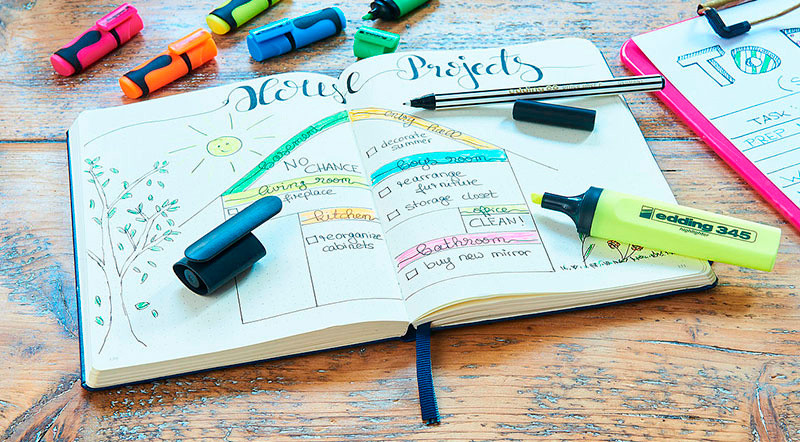 House Projects
basement
NO CHANCE
living room
fireplace
kitchen
reorganize
cabinets
hall
decorate
summer
boys room
rearrange
furniture
storage closet
office
CLEAN!
bathroom
buy new mirror
edding 345
highlighter
TO
TASK
PREP